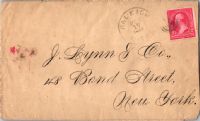 J. Lynn & Co.,
48 Bond Street,
New York.